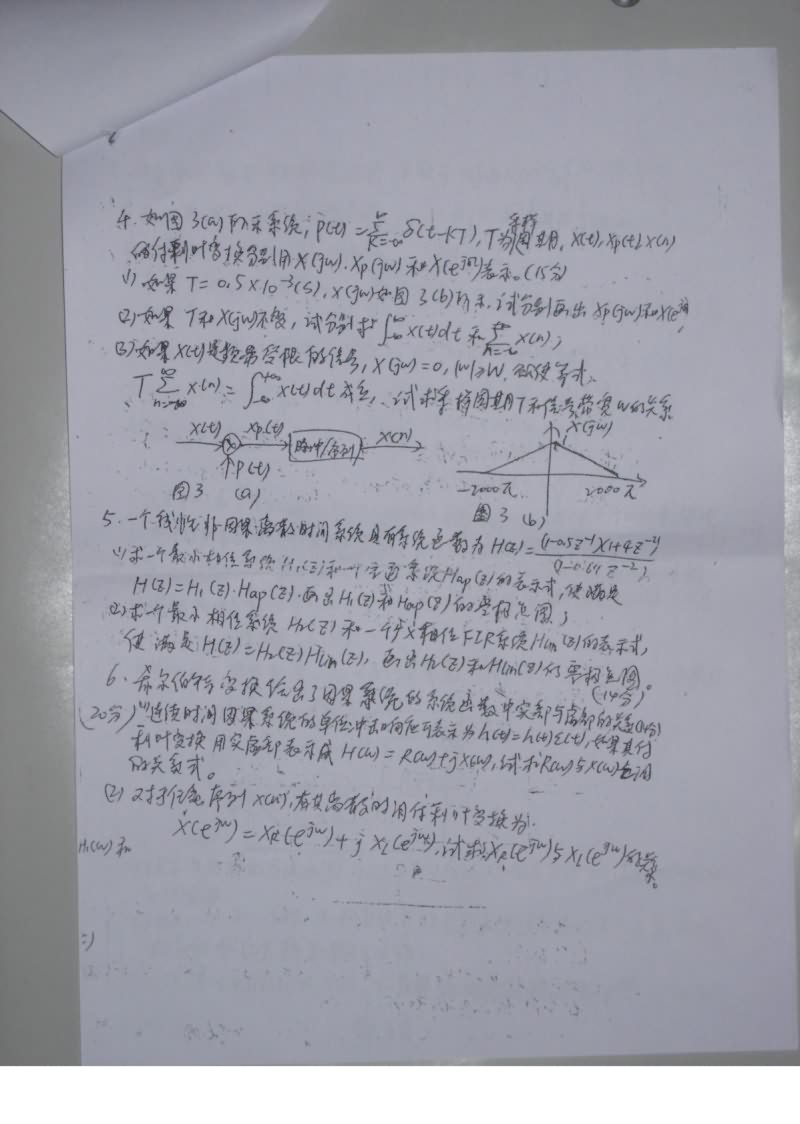 4. 如图3(a)所示系统, p(t)=∑_{k=-∞}^{∞}δ(t-kT), T为采样周期, x(t), xp(t), x(n)
的付里叶变换分别用X(jw), Xp(jw)和X(e^{jΩ})表示。(15分)
(1) 如果T=0.5×10⁻³(s), X(jw)如图3(b)所示, 试分别画出Xp(jw)和X(e^{jΩ});
(2) 如果T和X(jw)不变, 试分别求∫_{-∞}^{∞}x(t)dt和∑_{n=-∞}^{+∞}x(n);
(3) 如果x(t)是频带受限的信号, X(jw)=0, |w|≥W, 欲使等式
T∑_{n=-∞}^{∞}x(n)=∫_{-∞}^{+∞}x(t)dt成立, 试求采样周期T和信号带宽W的关系
x(t) xp(t) 脉冲/序列 x(n)
p(t)
X(jw)
1
-2000π 2000π
图3 (a) 图3 (b)
5. 一个线性非因果离散时间系统具有系统函数为H(z)=(1-0.5z⁻¹)(1+4z⁻²)/(1-0.64z⁻²)
(1) 求一个最小相位系统H₁(z)和一个全通系统Hap(z)的表示式, 使满足
H(z)=H₁(z)·Hap(z). 画出H₁(z)和Hap(z)的零极点图;
(2) 求一个最小相位系统H₂(z)和一个广义相位FIR系统Hlin(z)的表示式,
使满足H(z)=H₂(z)Hlin(z), 画出H₂(z)和Hlin(z)的零极点图。
(14分)
6. 希尔伯特变换给出了因果系统的系统函数中实部与虚部的关系(14分)
(20分) (1) 连续时间因果系统的单位冲击响应可表示为h(t)=h(t)ε(t), 如果其付
利叶变换用实虚部表示成H(w)=R(w)+jX(w), 试求R(w)与X(w)之间
的关系式。
(2) 对于任意序列x(n), 有其离散时间付利叶变换为
X(e^{jw})=X_R(e^{jw})+jX_I(e^{jw}), 试求X_R(e^{jw})与X_I(e^{jw})的关系。
H₁(w)和
=)